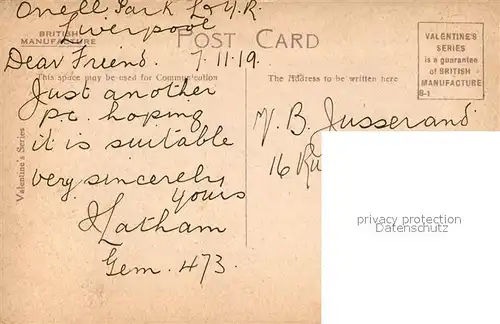 Orrell Park L & Y.R.
Liverpool
BRITISH
MANUFACTURE
POST CARD
VALENTINE'S
SERIES
is a guarantee
of BRITISH
MANUFACTURE
B-1
Dear Friend. 7.11.19.
This space may be used for Communication
The Address to be written here
Just another
pc. hoping
it is suitable
very sincerely
yours
Latham
Gem. 473.
Valentine's Series
B. Jusserand
16 Ru
privacy protection
Datenschutz